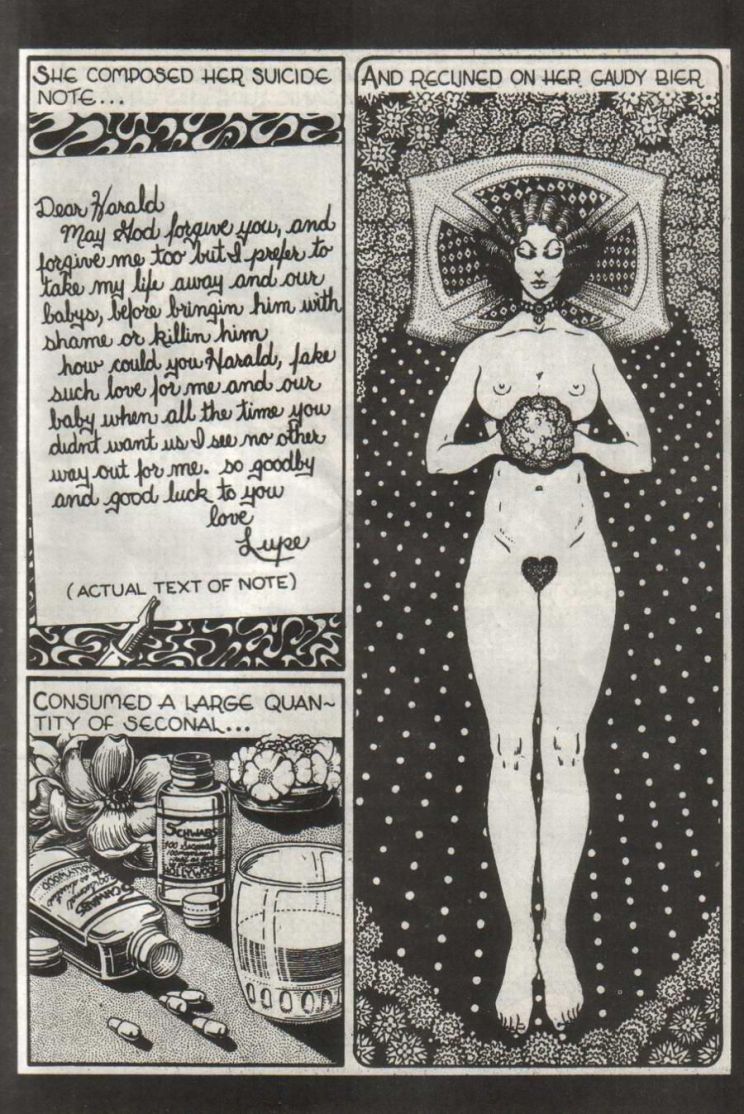 SHE COMPOSED HER SUICIDE
NOTE...
Dear Harald
May God forgive you, and
forgive me too but I prefer to
take my life away and our
babys, before bringin him with
shame or killin him
how could you Harald, fake
such love for me and our
baby when all the time you
didnt want us I see no other
way out for me. so goodby
and good luck to you
love
Lupe
(ACTUAL TEXT OF NOTE)
CONSUMED A LARGE QUAN~
TITY OF SECONAL...
SCHWABS
100 Seconal
SCHWABS
AND RECLINED ON HER GAUDY BIER